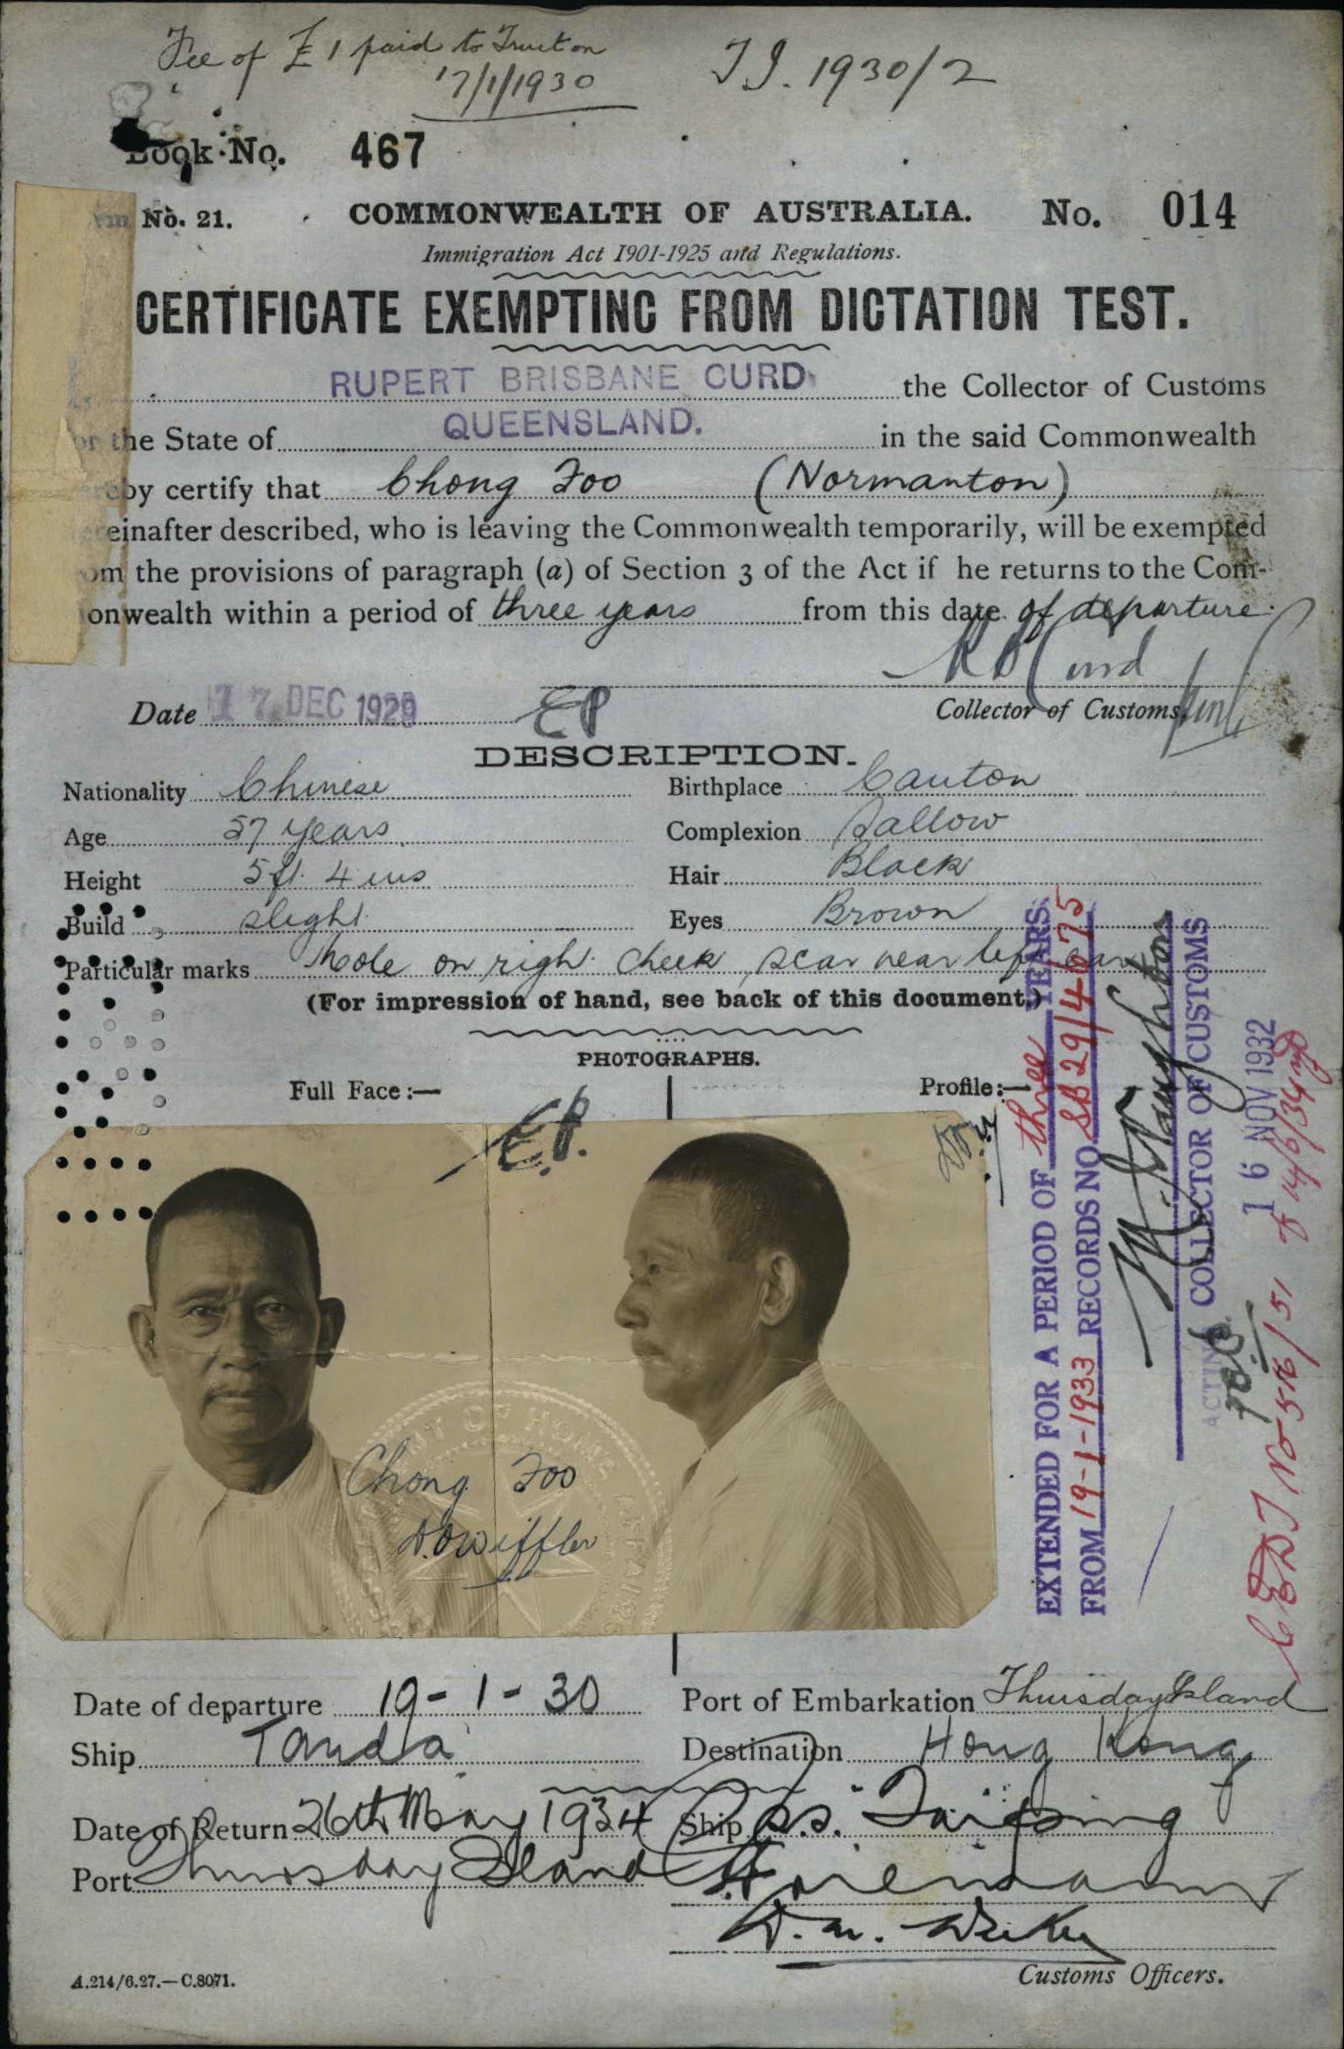 Fee of £1 paid to Truet on
17/1/1930
T.I. 1930/2
Book No. 467
No. 21.
COMMONWEALTH OF AUSTRALIA. No. 014
Immigration Act 1901-1925 and Regulations.
CERTIFICATE EXEMPTING FROM DICTATION TEST.
RUPERT BRISBANE CURD the Collector of Customs
or the State of QUEENSLAND. in the said Commonwealth
ereby certify that Chong Foo (Normanton)
ereinafter described, who is leaving the Commonwealth temporarily, will be exempted
om the provisions of paragraph (a) of Section 3 of the Act if he returns to the Com-
onwealth within a period of three years from this date of departure.
R B Curd
Date 17 DEC 1929 EP Collector of Customs.
DESCRIPTION.
Nationality Chinese Birthplace Canton
Age 57 years Complexion Sallow
Height 5 ft. 4 ins Hair Black
Build slight Eyes Brown
Particular marks Mole on right cheek, scar near left ear
(For impression of hand, see back of this document.)
PHOTOGRAPHS.
Full Face:— Profile:—
E.P.
Chong Foo
EXTENDED FOR A PERIOD OF three YEARS.
FROM 19-1-1933 RECORDS NO. SB 29/4675
ACTING COLLECTOR OF CUSTOMS
16 NOV 1932
CEDT No 516/51 of 14/6/34
Date of departure 19-1-30 Port of Embarkation Thursday Island
Ship Tanda Destination Hong Kong
Date of Return 26th May 1934 Ship s.s. Taiping
Port Thursday Island
Customs Officers.
A.214/6.27.—C.8071.